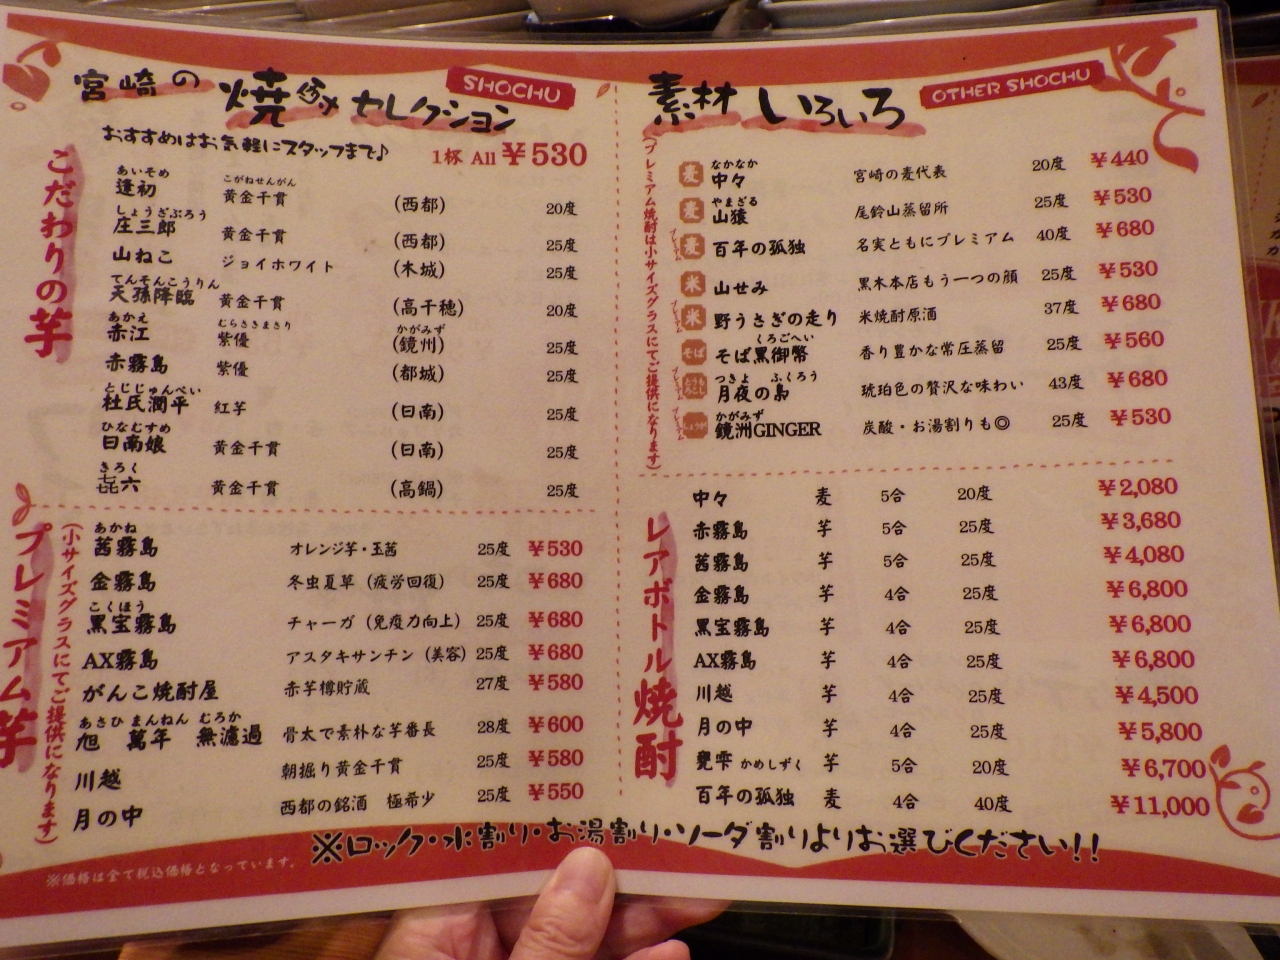 宮崎の焼酎セレクション
SHOCHU
おすすめはお気軽にスタッフまで♪
1杯 All ¥530
こだわりの芋
あいそめ こがねせんがん
逢初 黄金千貫 (西都) 20度
しょうざぶろう
庄三郎 黄金千貫 (西都) 25度
山ねこ ジョイホワイト (木城) 25度
てんそんこうりん
天孫降臨 黄金千貫 (高千穂) 20度
あかえ むらさきまさり かがみず
赤江 紫優 (鏡州) 25度
赤霧島 紫優 (都城) 25度
とじじゅんぺい
杜氏潤平 紅芋 (日南) 25度
ひなむすめ
日南娘 黄金千貫 (日南) 25度
きろく
㐂六 黄金千貫 (高鍋) 25度
プレミアム芋
(小サイズグラスにてご提供になります)
あかね
茜霧島 オレンジ芋・玉茜 25度 ¥530
金霧島 冬虫夏草 (疲労回復) 25度 ¥680
こくほう
黒宝霧島 チャーガ (免疫力向上) 25度 ¥680
AX霧島 アスタキサンチン (美容) 25度 ¥680
がんこ焼酎屋 赤芋樽貯蔵 27度 ¥580
あさひ まんねん むろか
旭 萬年 無濾過 骨太で素朴な芋番長 28度 ¥600
川越 朝掘り黄金千貫 25度 ¥580
月の中 西都の銘酒 極希少 25度 ¥550
素材いろいろ
OTHER SHOCHU
(プレミアム焼酎は小サイズグラスにてご提供になります)
なかなか
麦 中々 宮崎の麦代表 20度 ¥440
やまざる
麦 山猿 尾鈴山蒸留所 25度 ¥530
プレミアム 麦 百年の孤独 名実ともにプレミアム 40度 ¥680
米 山せみ 黒木本店もう一つの顔 25度 ¥530
プレミアム 米 野うさぎの走り 米焼酎原酒 37度 ¥680
くろごへい
そば そば黒御幣 香り豊かな常圧蒸留 25度 ¥560
つきよ ふくろう
プレミアム とうもろこし 月夜の梟 琥珀色の贅沢な味わい 43度 ¥680
かがみず
プレミアム しょうが 鏡洲GINGER 炭酸・お湯割りも◎ 25度 ¥530
レアボトル焼酎
中々 麦 5合 20度 ¥2,080
赤霧島 芋 5合 25度 ¥3,680
茜霧島 芋 5合 25度 ¥4,080
金霧島 芋 4合 25度 ¥6,800
黒宝霧島 芋 4合 25度 ¥6,800
AX霧島 芋 4合 25度 ¥6,800
川越 芋 4合 25度 ¥4,500
月の中 芋 4合 25度 ¥5,800
甕雫 かめしずく 芋 5合 20度 ¥6,700
百年の孤独 麦 4合 40度 ¥11,000
※ロック・水割り・お湯割り・ソーダ割りよりお選びください!!
※価格は全て税込価格となっています。